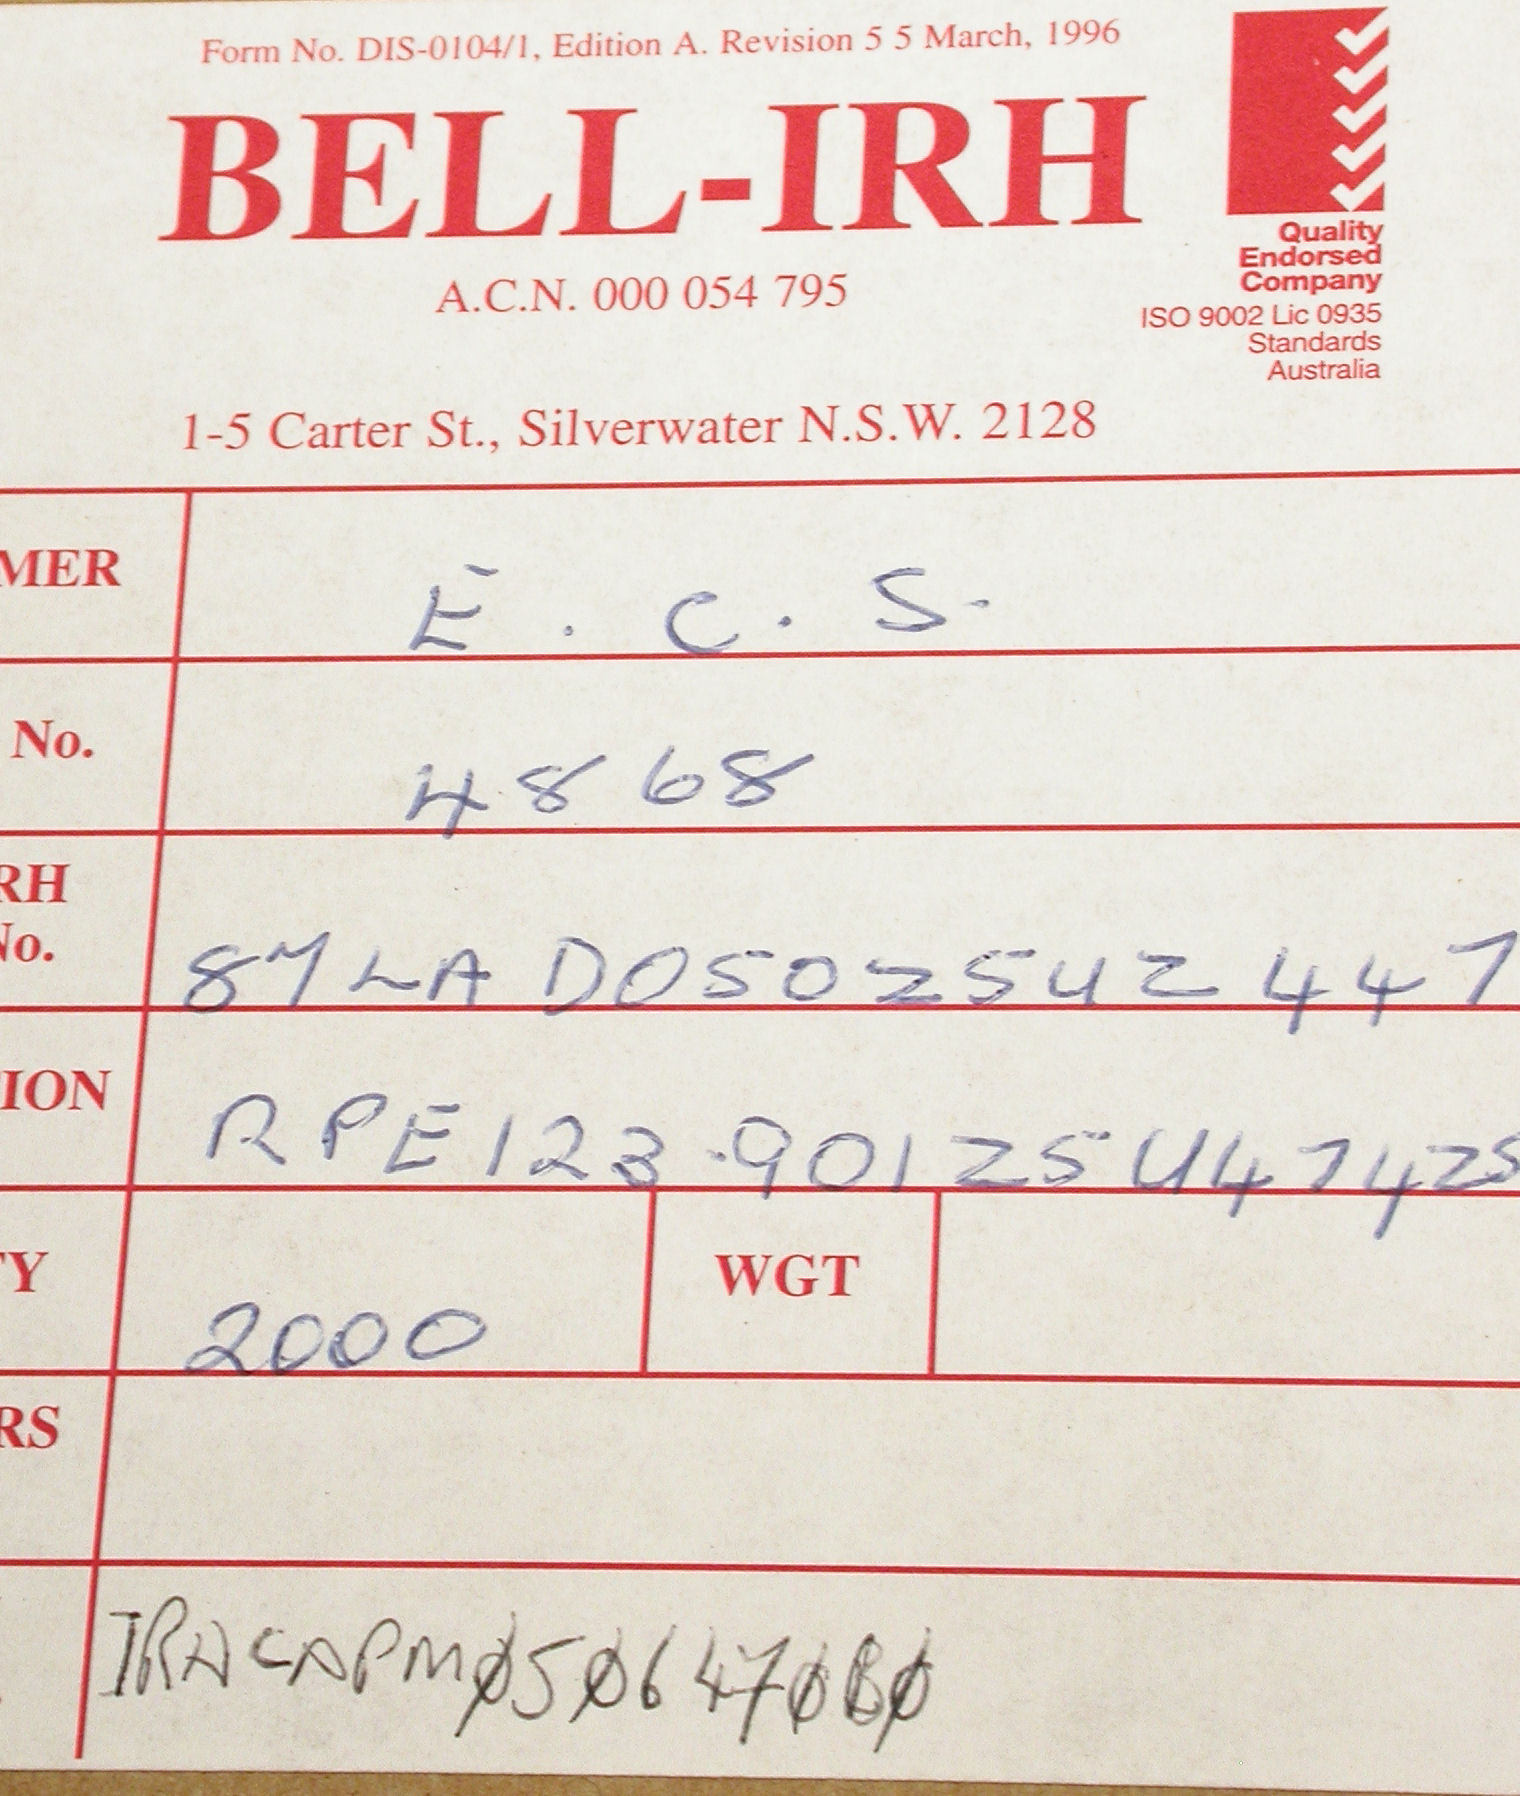 Form No. DIS-0104/1, Edition A. Revision 5 5 March, 1996
BELL-IRH
A.C.N. 000 054 795
Quality
Endorsed
Company
ISO 9002 Lic 0935
Standards
Australia
1-5 Carter St., Silverwater N.S.W. 2128
MER E. C. S.
No. 4868
RH
No.
TION RPE123.90125U47425
TY 2000 WGT
RS